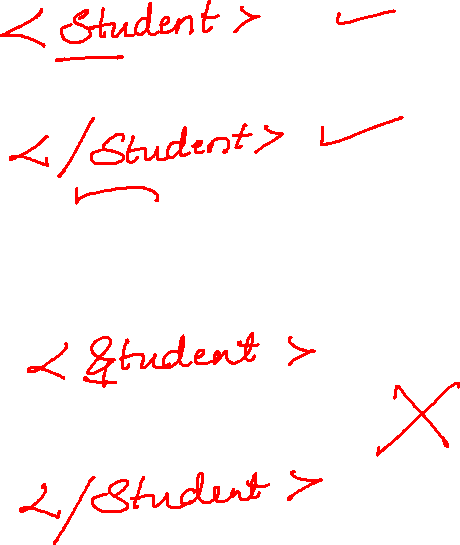 <Student> ✓
</Student> ✓
<Student>
</Student>